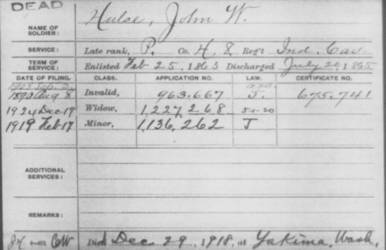 DEAD
NAME OF SOLDIER: Hulse, John W.
SERVICE: Late rank, P. Co. H. 8 Regt. Ind. Cav.
TERM OF SERVICE: Enlisted Feb 25, 1863 Discharged July 20, 1865
DATE OF FILING. CLASS. APPLICATION NO. LAW. CERTIFICATE NO.
Aug Invalid, 963.667 J. 675.741
Dec 19 Widow, 1,227,268
1919 Feb 17 Minor, 1,136,262 J
ADDITIONAL SERVICES:
REMARKS:
Died Dec 29, 1918, at Yakima, Wash